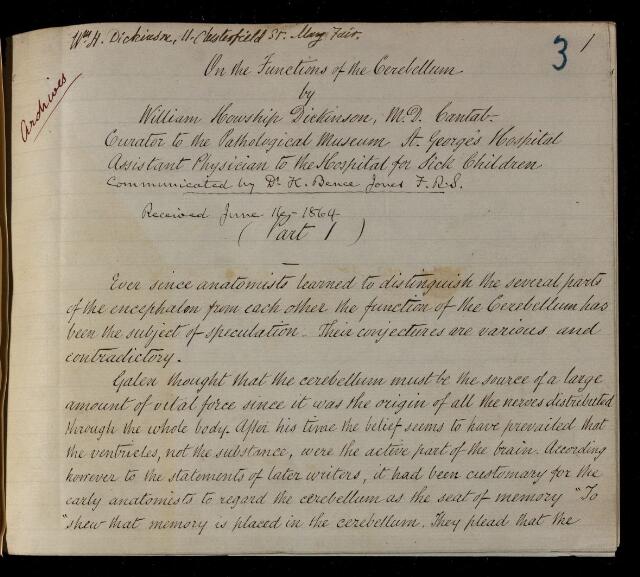 Wm H. Dickinson, 11 Chesterfield St. May Fair.
3 1
Archives
On the Functions of the Cerebellum
by
William Howship Dickinson, M.D. Cantab.
Curator to the Pathological Museum St. George's Hospital
Assistant Physician to the Hospital for Sick Children
Communicated by Dr H. Bence Jones F.R.S.
Received June 1864
(Part 1)
Ever since anatomists learned to distinguish the several parts
of the encephalon from each other the function of the Cerebellum has
been the subject of speculation. Their conjectures are various and
contradictory.
Galen thought that the cerebellum must be the source of a large
amount of vital force since it was the origin of all the nerves distributed
through the whole body. After his time the belief seems to have prevailed that
the ventricles, not the substance, were the active part of the brain. According
however to the statements of later writers, it had been customary for the
early anatomists to regard the cerebellum as the seat of memory "To
"shew that memory is placed in the cerebellum. They plead that the